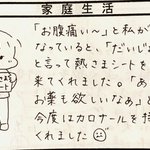 家庭生活
「お腹痛い〜」と私が
なっていると、「だいじ
と言って熱さまシートを
来てくれました。「あ
お薬も欲しいなぁ」と
今度はカロナールを持
くれました